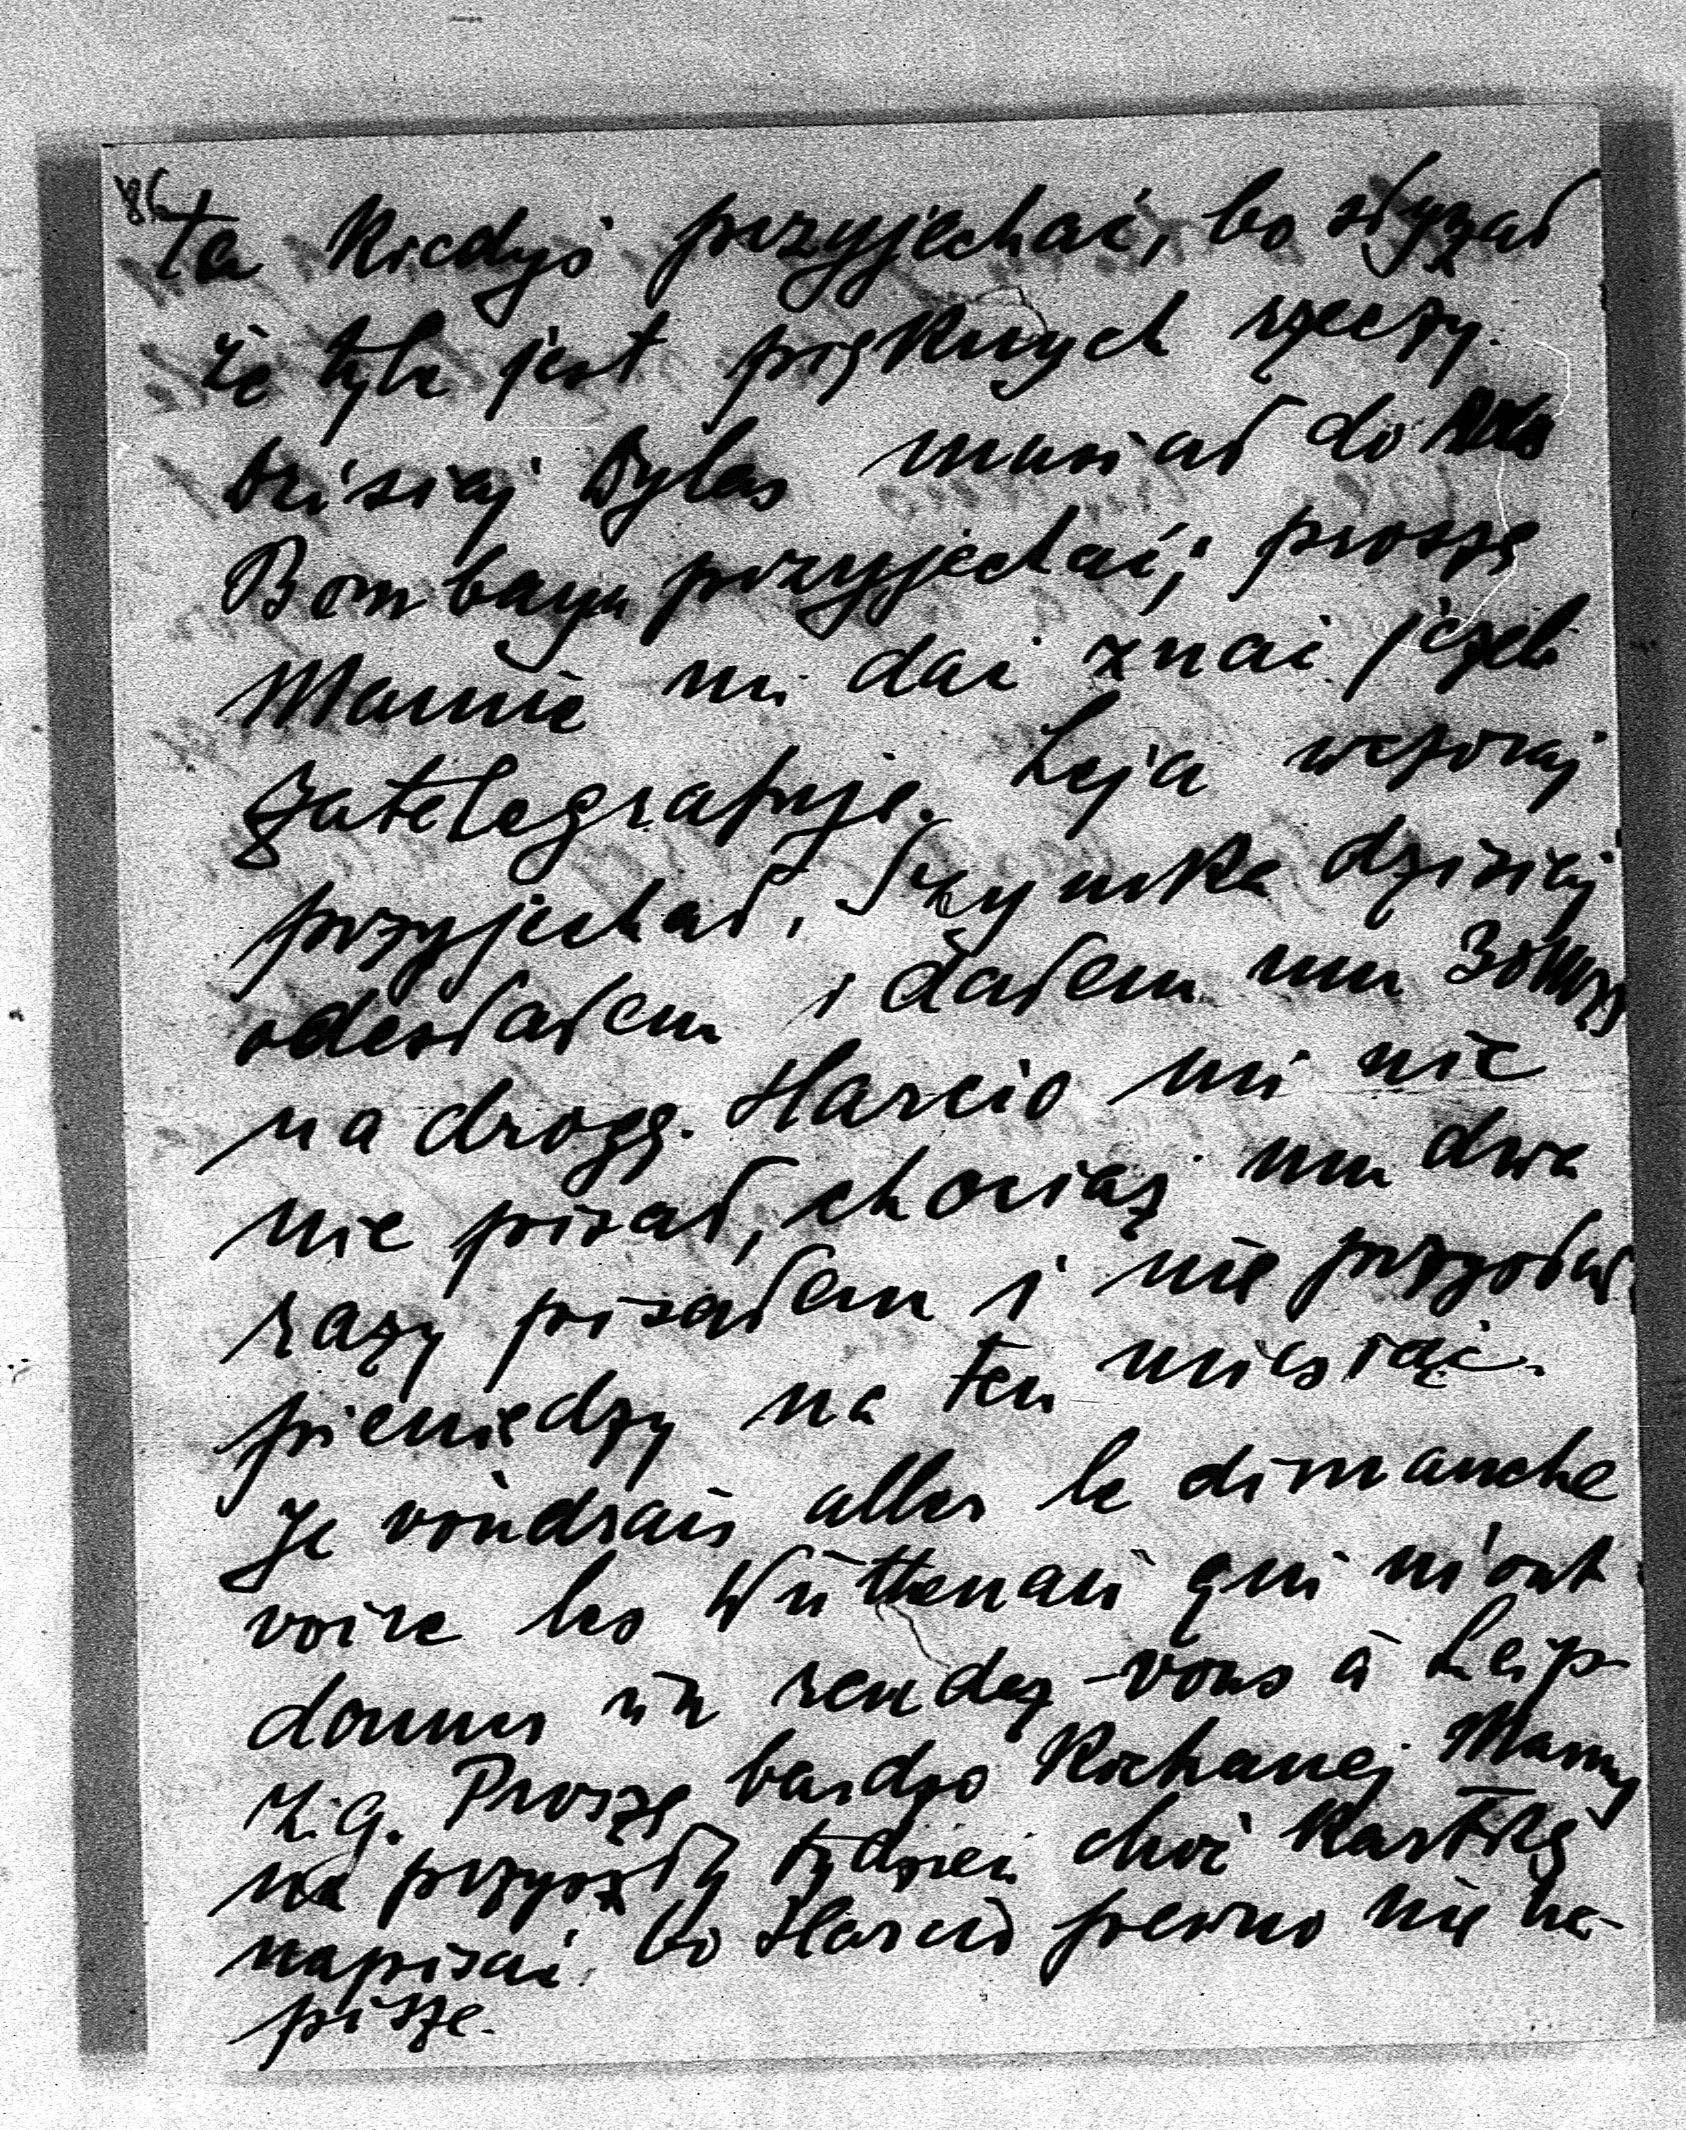 86
ta kiedyś przyjechać, bo słyszał
że tyle jest pięknych rzeczy.
Dzisiaj Dylas musiał do
Bombayu przyjechać; proszę
Mamie mi dać znać jeżeli
zatelegrafuje. Leja wczoraj
przyjechał, Szymka dzisiaj
odesłałem i dałem mu 30
na drogę. Harcio mi nic
nie pisał, chociaż mu dwa
razy pisałem i nie przysłał
pieniędzy na ten miesiąc.
Je voudrais aller le dimanche
voire les Wüthenau qui m'ont
donner un rendez-vous à Leip-
zig. Proszę bardzo kochanej Mamy
na przyszły tydzień choć kartkę
napisać bo Harcio pewno nie na-
pisze.